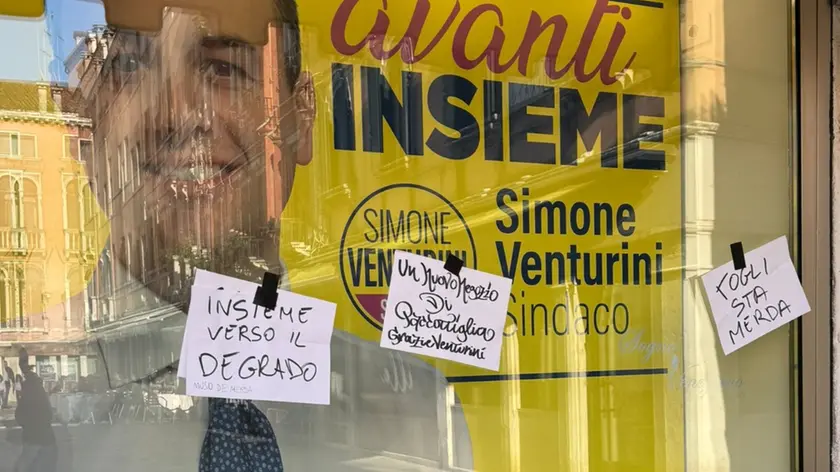 avanti
INSIEME
SIMONE
VENTURINI
Simone
Venturini
Sindaco
INSIEME
VERSO IL
DEGRADO
UN NUOVO NEGOZIO
DI
PACCOTTIGLIA
Grazie VENTURINI
TOGLI
STA
MERDA